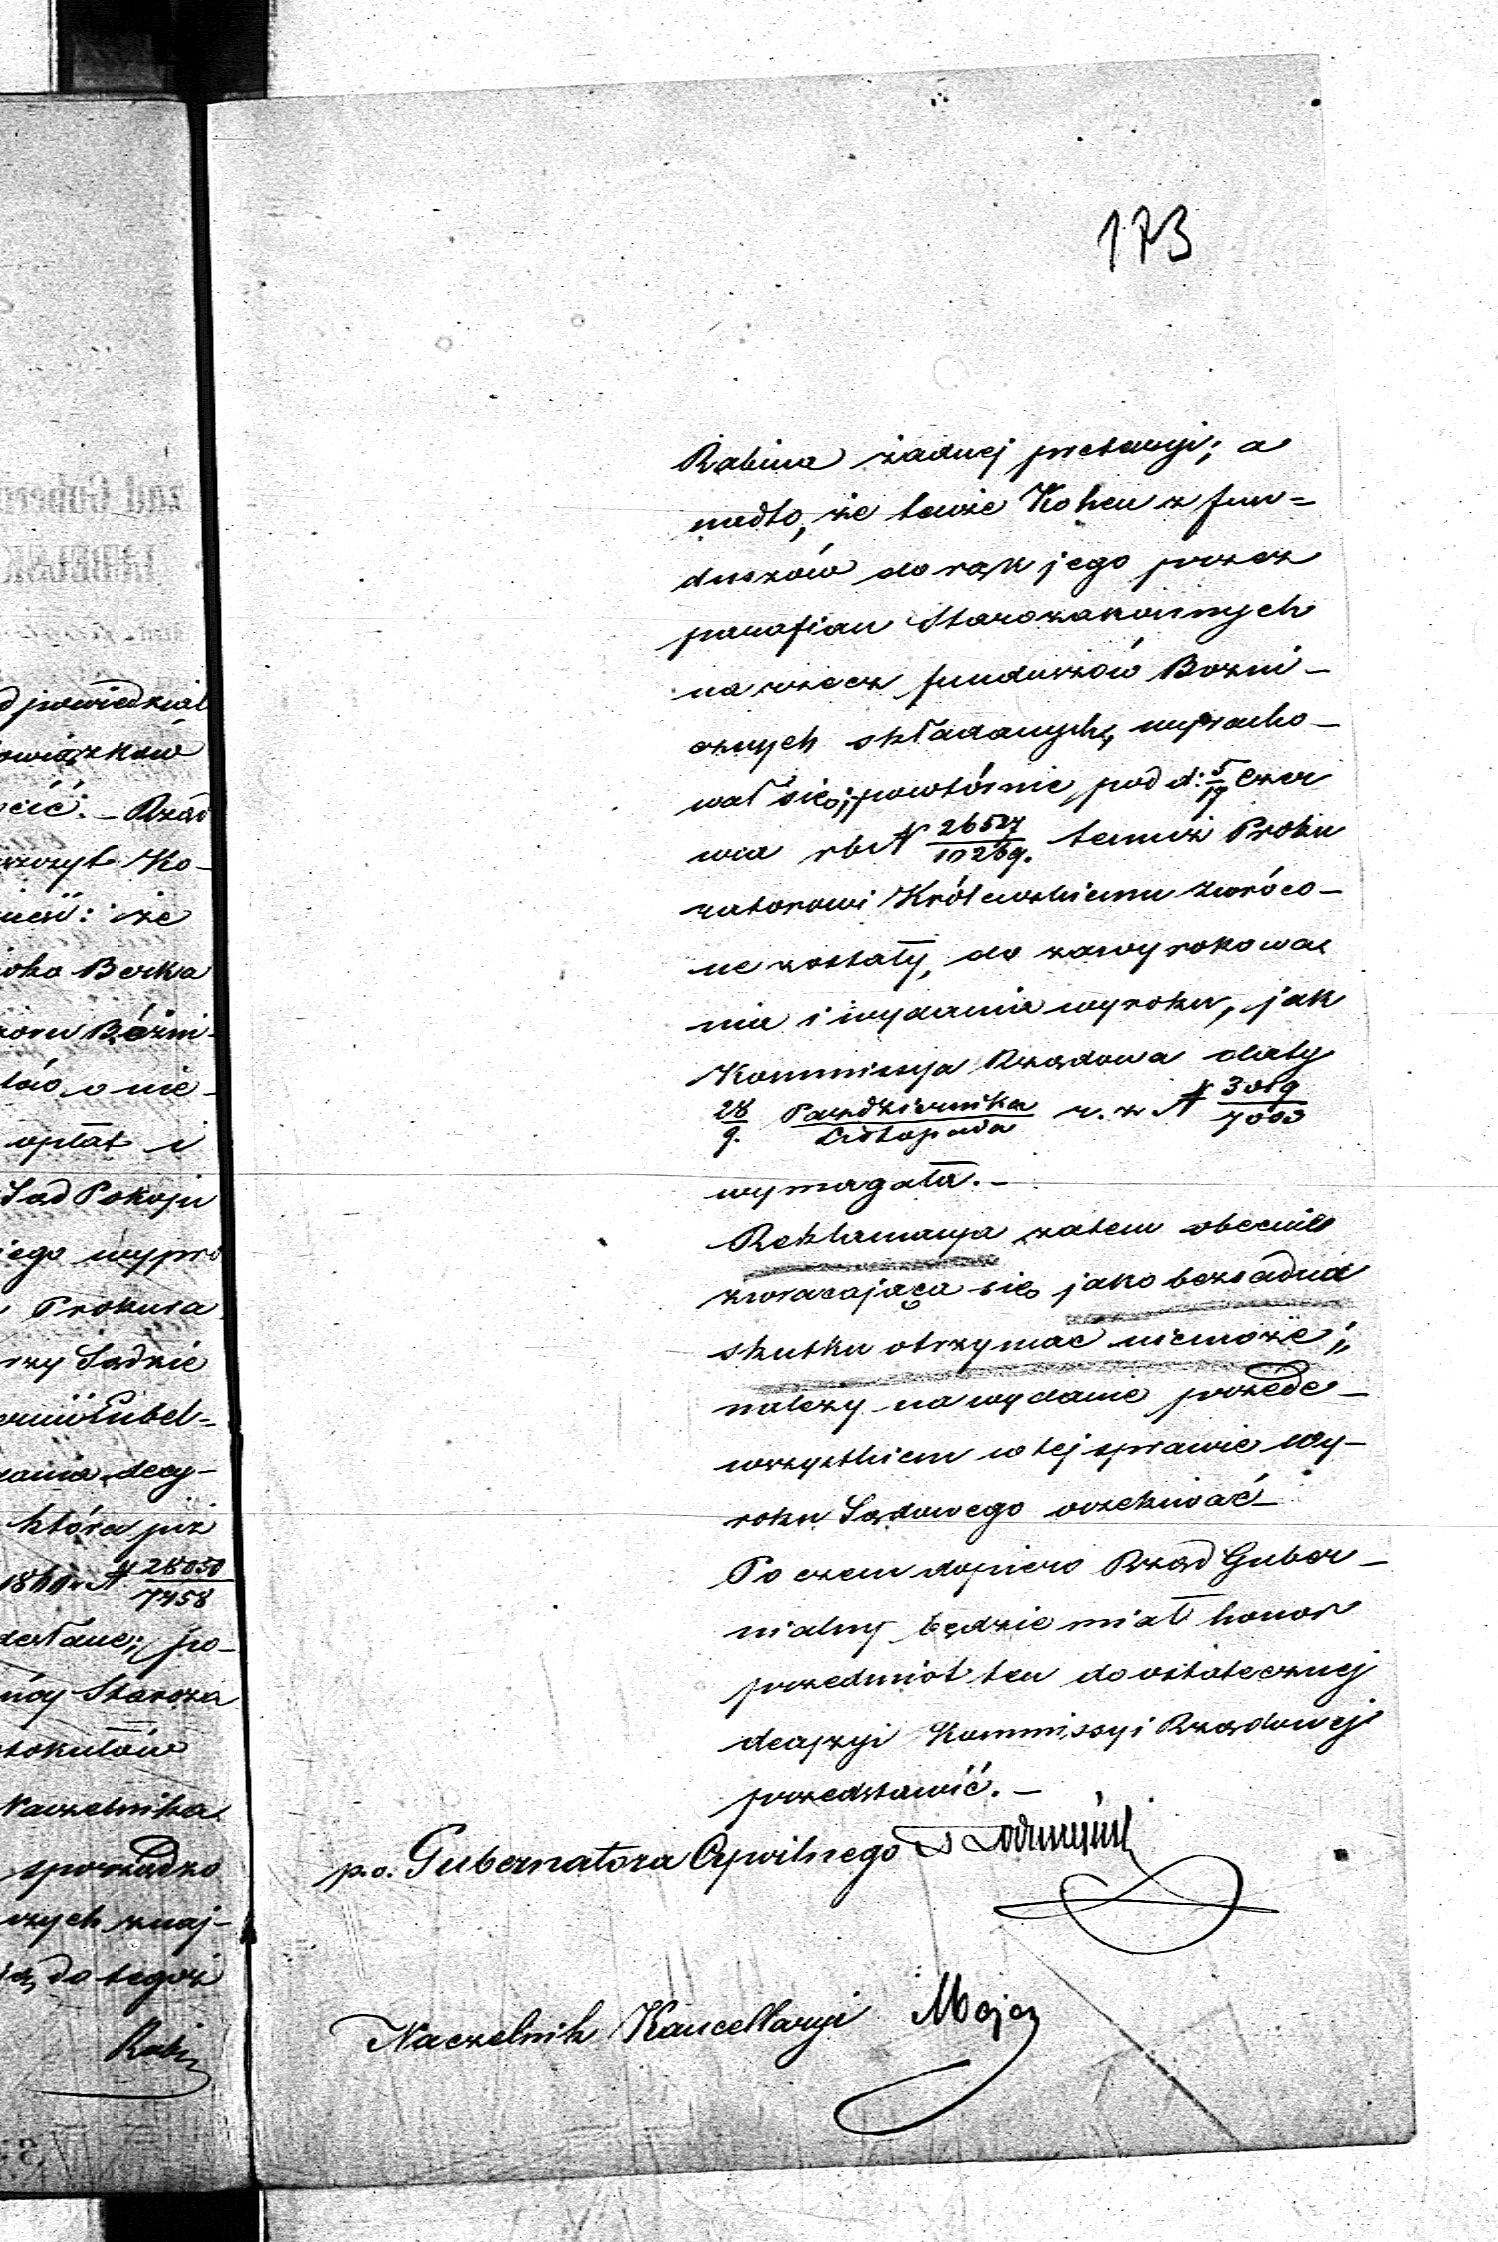 173
Rabina żadnej pretensyi; a
nadto, że tenże Kohen z fun=
duszów do rąk jego przez
parafian Starozakonnych
na rzecz funduszów Bożni-
cznych składanych, wyracho-
wał się; powtórnie pod d: 5/17 Czer
wca rb N 26527/10269. temuż Proku
ratorowi Królewskiemu zwróco-
ne zostały, do zawyrokowa
nia i wydania wyroku, jak
Kommissya Rządowa daty
28/9. Października/Listopada r. z N 3019/7003
wymagała.-
Reklamacya zatem obecnie
zwracająca się, jako bezzasadna
skutku otrzymać niemoże;
należy na wydanie przede-
wszystkiem w tej sprawie Wy-
roku Sądowego oczekiwać
Po czem dopiero Rząd Guber-
nialny będzie miał honor
przedmiot ten do ostatecznej
decyzyi Kommissyi Rządowej
przedstawić.-
p.o. Gubernatora Cywilnego
Naczelnik Kancellaryi
powiedział
Rząd
Ko-
że
Berka
Bóżni-
o nie-
opłat i
Sąd Pokoju
jego
Prokura
Sądzie
Lubel=
decy-
która już
N 28050/7758
po-
Staroza
Naczelnika
sporządzo
znaj-
do tegoż
Rabi